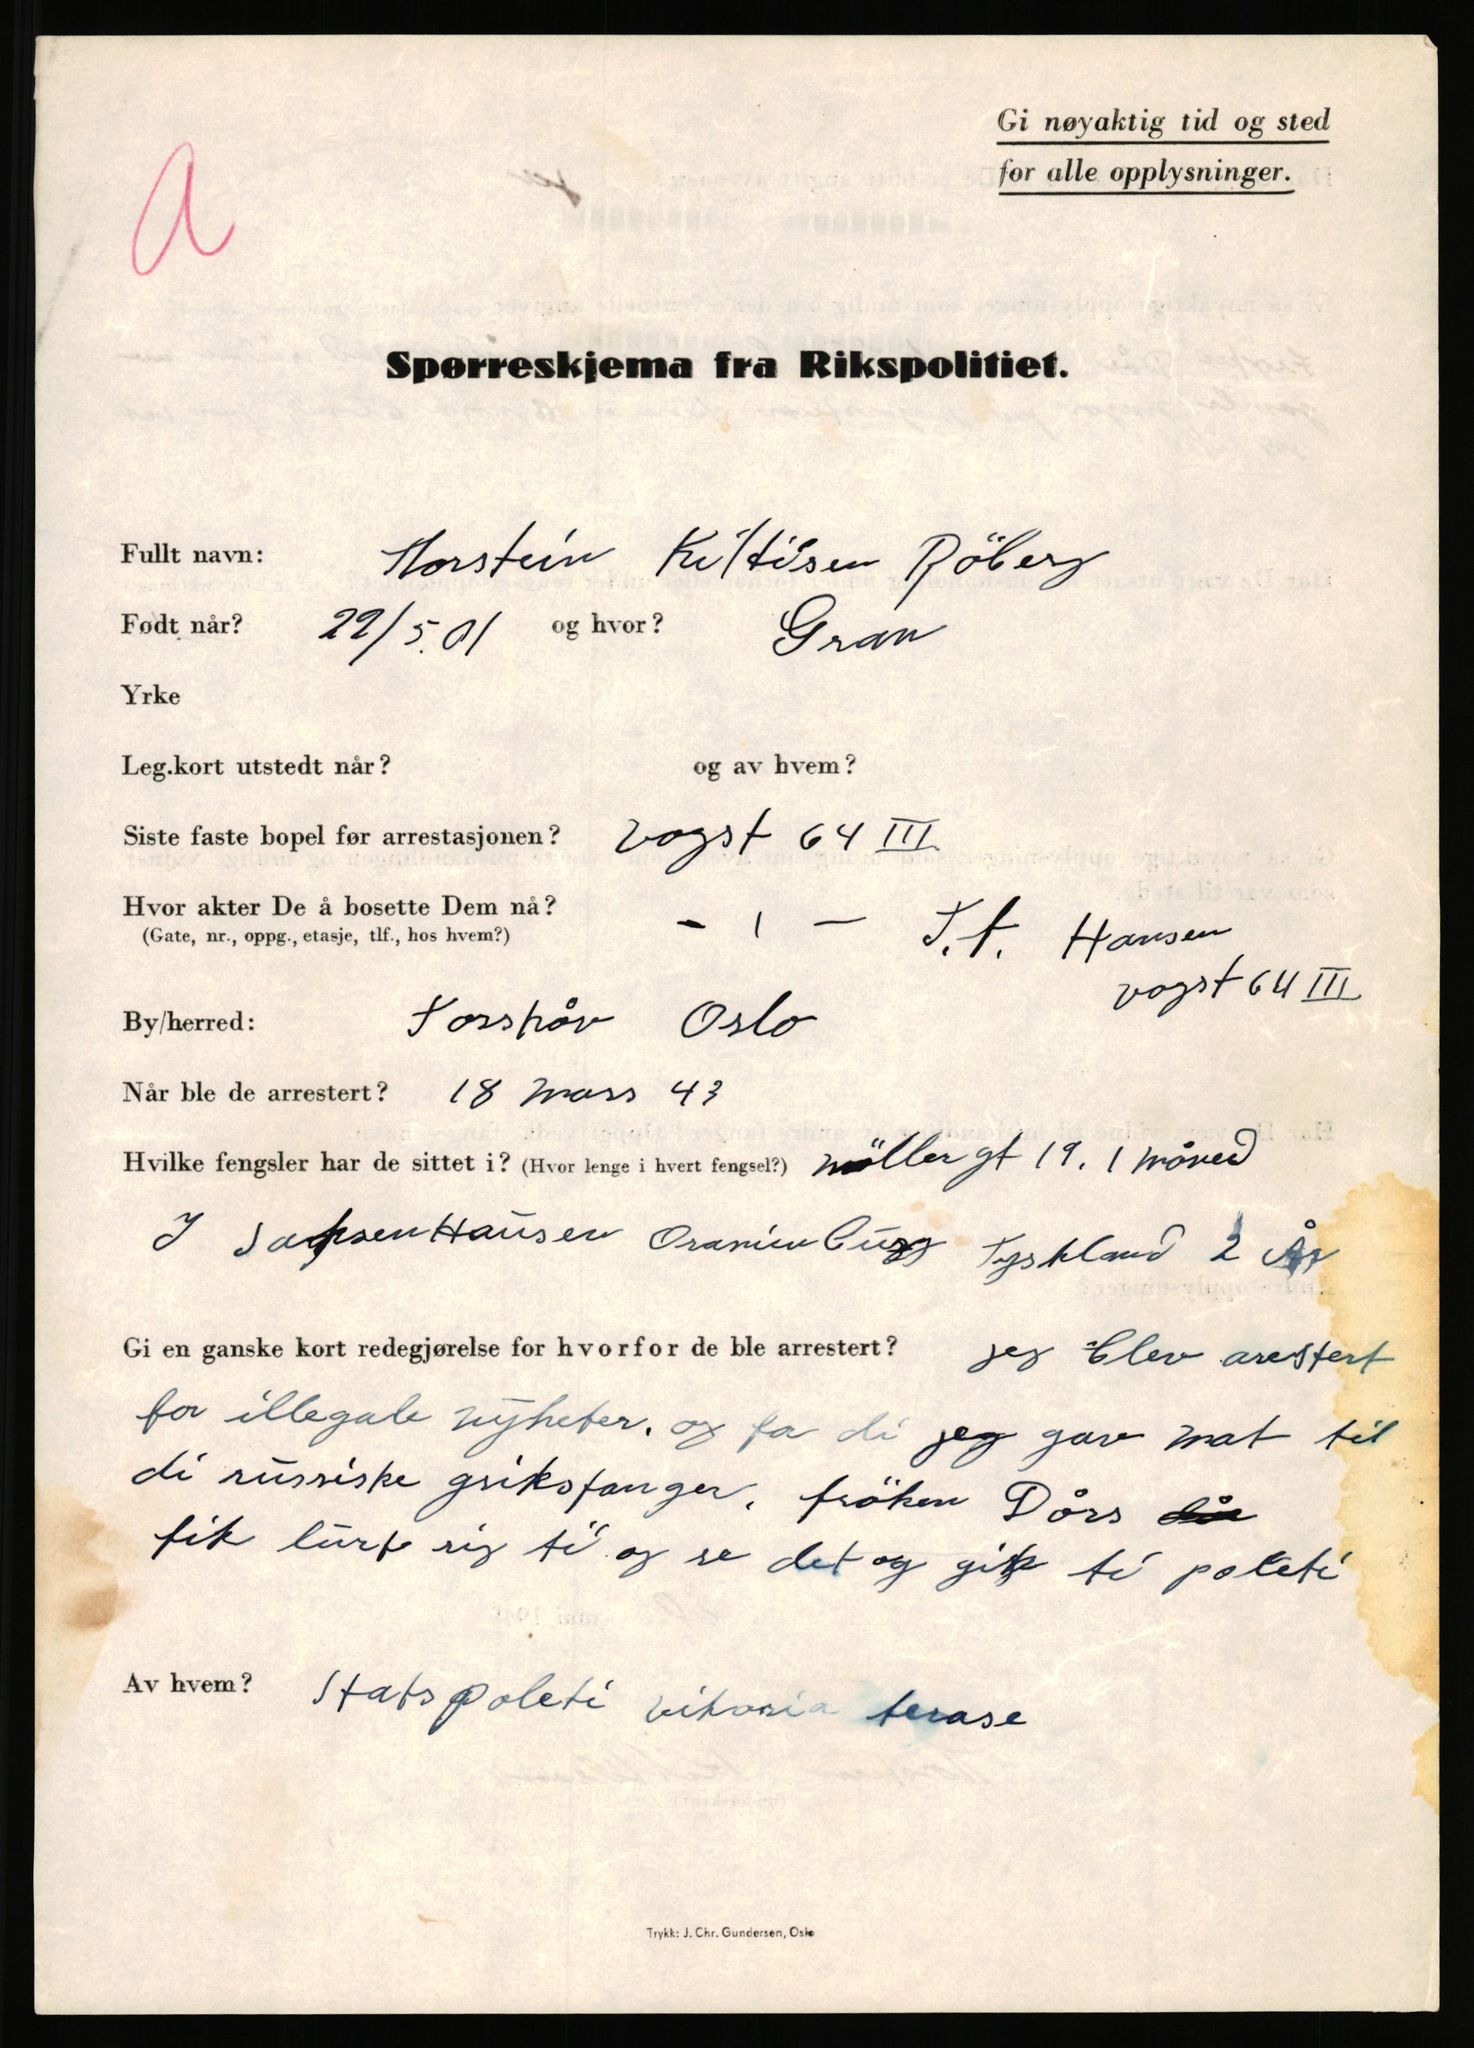 Gi nøyaktig tid og sted
for alle opplysninger.
A
Spørreskjema fra Rikspolitiet.
Fullt navn: Thorstein Kiltisen Röberg
Født når? 22/5.01 og hvor? Gran
Yrke
Leg.kort utstedt når? og av hvem?
Siste faste bopel før arrestasjonen? vogst 64 III
Hvor akter De å bosette Dem nå? - ı - T. A. Hansen
(Gate, nr., oppg., etasje, tlf., hos hvem?) vogst 64 III
By/herred: Torshåv Oslo
Når ble de arrestert? 18 mars 43
Hvilke fengsler har de sittet i? (Hvor lenge i hvert fengsel?) möllergt 19. 1 måned
I SachsenHausen Oranienburg Tyskland 2 År
Gi en ganske kort redegjørelse for hvorfor de ble arrestert? jeg blev arestert
for illegale nyheter. og for di jeg gav mat til
di russiske griksfanger. fröken Dårs
fik lurt sig ti og se det og gik ti poleti
Av hvem? Statspoleti vitoria terase
Trykk: J. Chr. Gundersen, Oslo